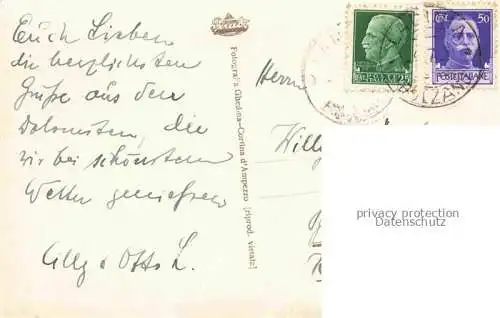 Euch Lieben
die herzlichsten
Grüße aus den
Dolomiten, die
wir bei schönstem
Wetter genießen
Otto L.
Fotografia Ghedina-Cortina d'Ampezzo [riprod. vietata]
Herrn
Willy
POSTE ITALIANE
CENT. 50
POSTE ITALIANE
BOLZANO
privacy protection
Datenschutz